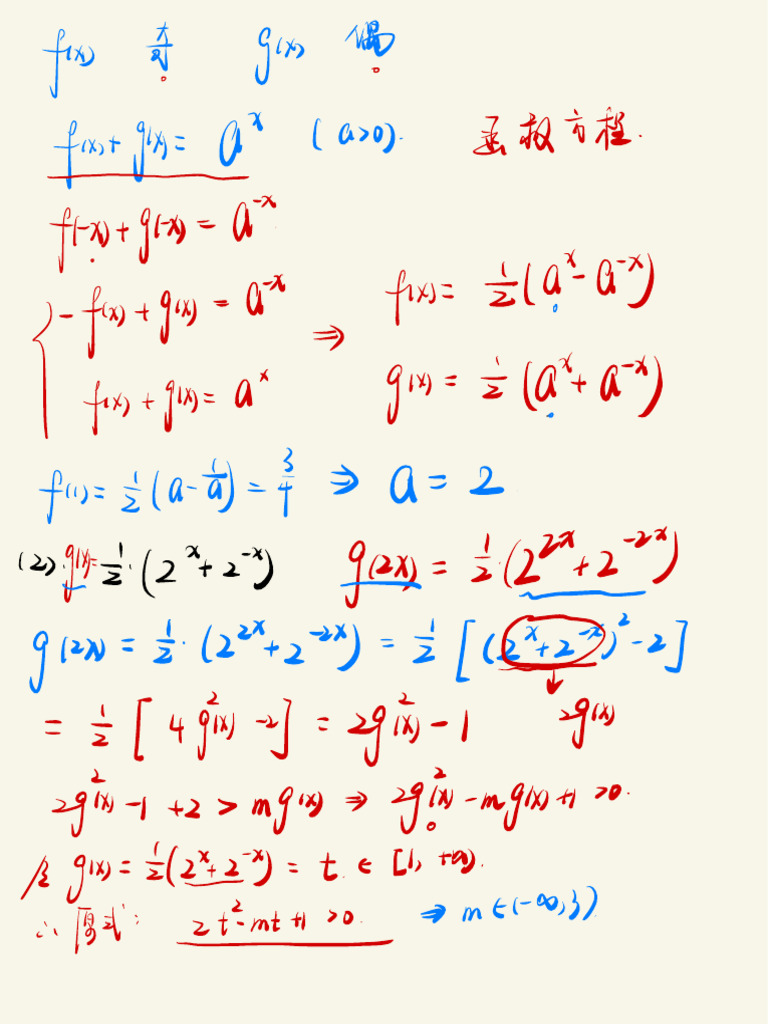 f(x) 奇 g(x) 偶
f(x) + g(x) = a^x (a>0). 函数方程.
f(-x) + g(-x) = a^{-x}
{ -f(x) + g(x) = a^{-x}
f(x) + g(x) = a^x
⇒ f(x) = 1/2 (a^x - a^{-x})
g(x) = 1/2 (a^x + a^{-x})
f(1) = 1/2 (a - 1/a) = 3/4 ⇒ a = 2
(2). g(x) = 1/2 · (2^x + 2^{-x}) g(2x) = 1/2 · (2^{2x} + 2^{-2x})
g(2x) = 1/2 · (2^{2x} + 2^{-2x}) = 1/2 [(2^x + 2^{-x})^2 - 2]
↓ 2g(x)
= 1/2 [4g^2(x) - 2] = 2g^2(x) - 1
2g^2(x) - 1 + 2 > mg(x) ⇒ 2g^2(x) - mg(x) + 1 > 0.
令 g(x) = 1/2 (2^x + 2^{-x}) = t ∈ [1, +∞).
∴ 原式: 2t^2 - mt + 1 > 0. ⇒ m ∈ (-∞, 3)